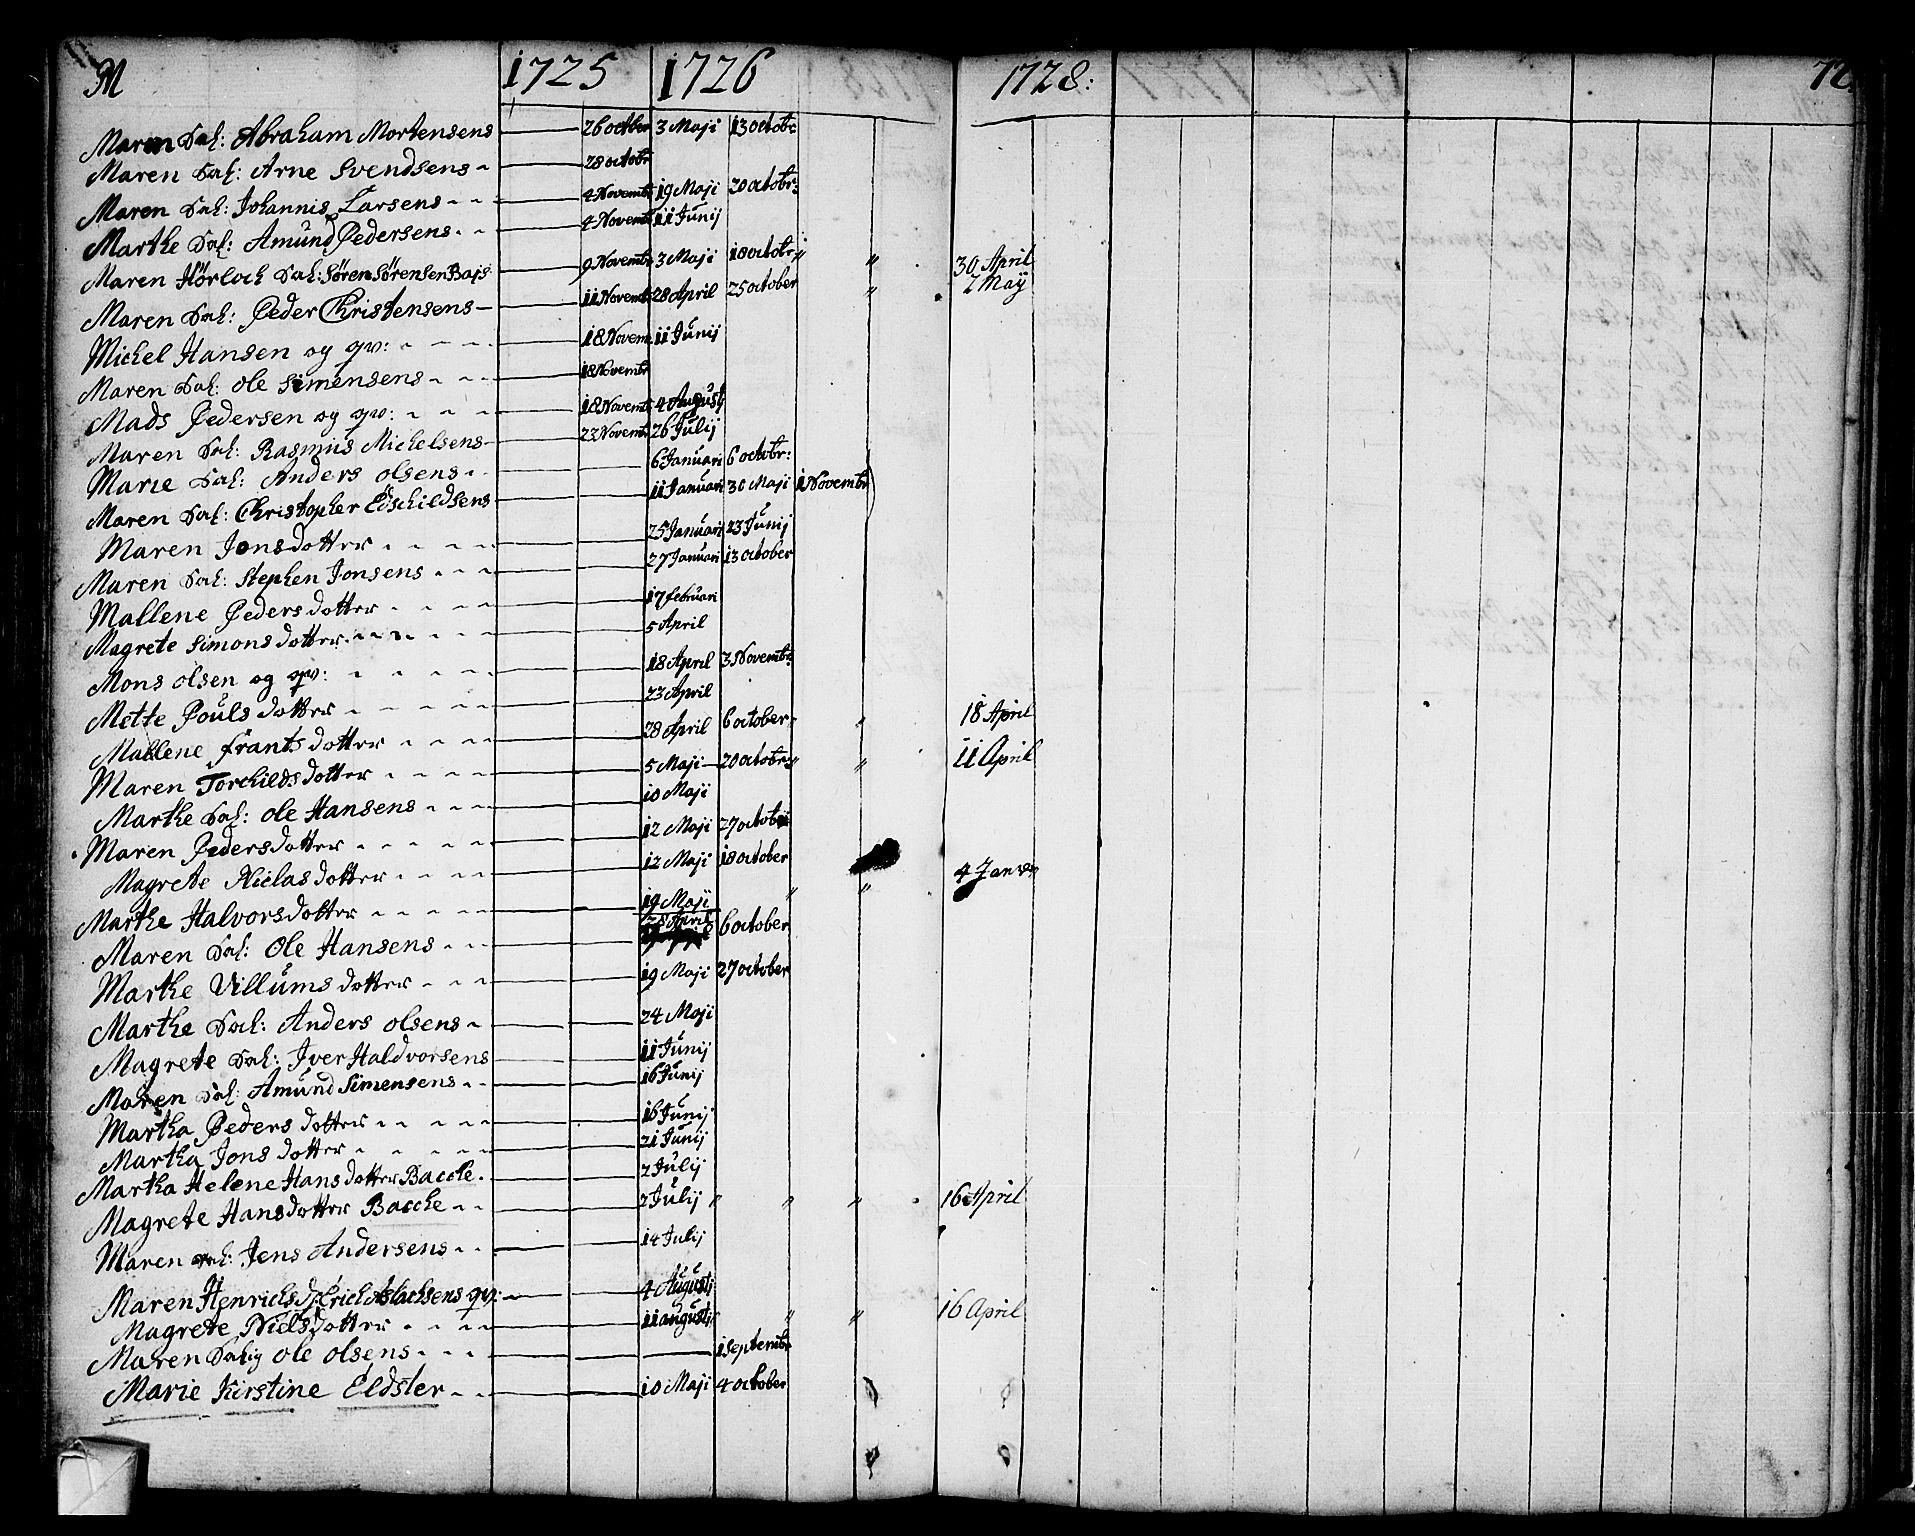 M 1725 1726 1728: 72.
Maren Sal: Abraham Mortensens 26 octber 3 Maji 13 octobr
Maren Sal: Arne Svendsens 28 octobr
Maren Sal: Johannis Larsens 4 Novembr 19 Maji 20 octobr:
Marthe Sal: Amund Pedersens 4 Novembr 11 Junij
Maren Hörloch Sal: Sören Sörensen Bajs 9 Novembr 3 Maji 18 octobr " " 30 April
Maren Sal: Peder Christensens 11 Novemb 28 April 25 october " 2 Maÿ
Michel Hansen og qv: 18 Novem 11 Junij
Maren Sal: ole Simensens 18 Novembr
Mads Pedersen og qv: 18 Novemb 4 August
Maren Sal: Rasmus Michelsens 23 Novemb 26 Julij
Marie Sal: Anders olsens 6 Januari 6 octobr:
Maren Sal: Christopher Edschildsens 11 Januari 30 Maji 1 Novembr
Maren Jonsdotter 25 Januari 23 Junij
Maren Sal: Stephen Jonsens 27 Januari 13 october
Mallene Pedersdotter 17 februari
Magrete Simonsdotter 5 April
Mons olsen og qv: 18 April 3 Novembr:
Mette Poulsdotter 23 April
Mallene frantsdotter 28 April 6 october " " 18 April
Maren Torchildsdotter 5 Maji 20 octobr " " 11 April
Marthe Sal: ole Hansens 10 Maji
Maren Pedersdotter 12 Maji 27 octob
Magrete Niclasdotter 12 Maji 18 october
Marthe Halvorsdotter 19 Maji " " 4 Januar
Maren Sal: Ole Hansens 28 April 6 october
Marthe Villumsdotter 19 Maji 27 october
Marthe Sal: Anders olsens 24 Maji
Magrete Sal: Iver Haldvorsens 11 Junij
Maren Sal: Amund Simensens 16 Junij
Martha Pedersdotter 16 Junij
Martha Jonsdotter 21 Junij
Martha Helene Hansdotter Bacche 2 Julij
Magrete Hansdotter Bacche 2 Julij " " " 16 April
Maren Sal: Jens Andersens 14 Julij
Maren Henrichsd: Erich Aslachsens qv: 4 Augusti
Magrete Nielsdotter 11 augusti " " 16 April
Maren Salig ole olsens 1 Septembr
Marie Kirstine Eldster 10 Maji 4 october